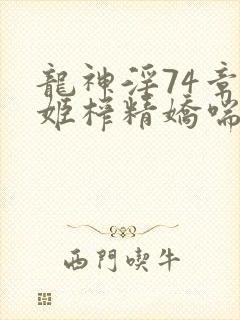 龍神淫74章
姬榨精嬌喘
西門喫牛